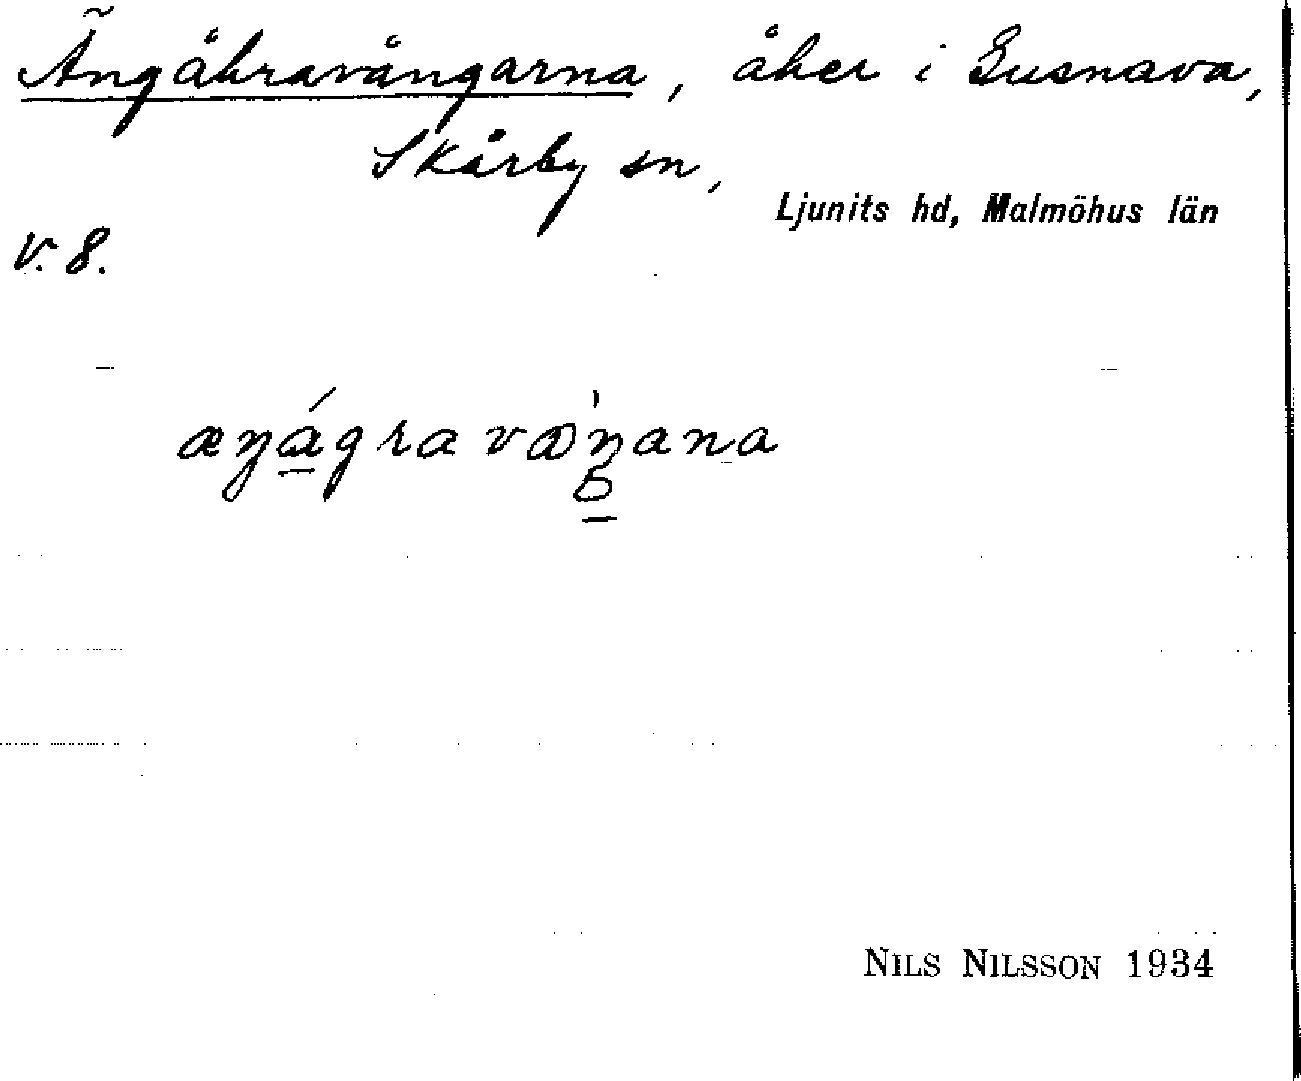 Ängåkravångarna, åker i Gusnava,
Skårby sn,
Ljunits hd, Malmöhus län
V. 8.
NILS NILSSON 1934